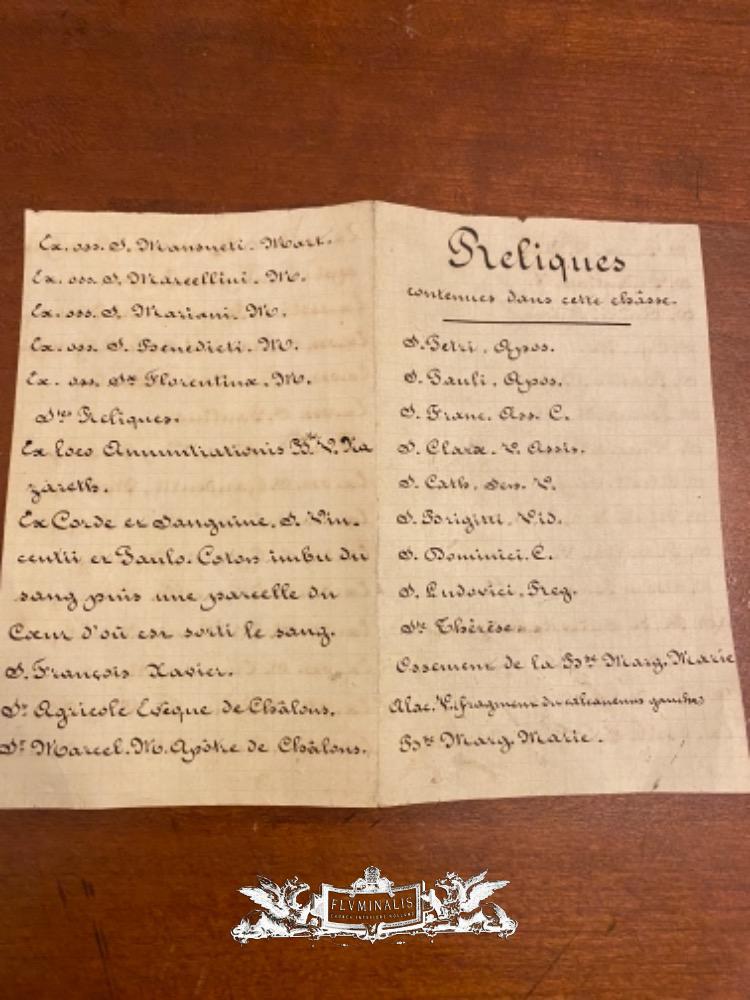 Ex. oss. S. Mansueti. Mart.
Ex. oss. S. Marcellini. M.
Ex. oss. S. Mariani. M.
Ex. oss. S. Benedicti. M.
Ex. oss. Stæ Florentinæ. M.
Stes Reliques.
Ex loco Annuntiationis Btæ V. Na
zareth.
Ex Corde et Sanguine. S. Vin-
centii et Paulo. Coton imbu du
sang puis une parcelle du
Cœur d'où est sorti le sang.
S. François Xavier.
St Agricole Evêque de Châlons.
St Marcel. M. Apôtre de Châlons.
Reliques
contenues dans cette châsse.
S. Petri. Apos.
S. Pauli. Apos.
S. Franc. Ass. C.
S. Claræ. V. Assis.
S. Cath. Sen. V.
S. Brigitti. Vid.
S. Dominici. C.
S. Ludovici. Reg.
Ste Thérèse.
Ossement de la Bse Marg. Marie
Alac. V. (fragment du calcaneus gauche)
Bse Marg. Marie.
FLVMINALIS
CHURCH INTERIORS HOLLAND